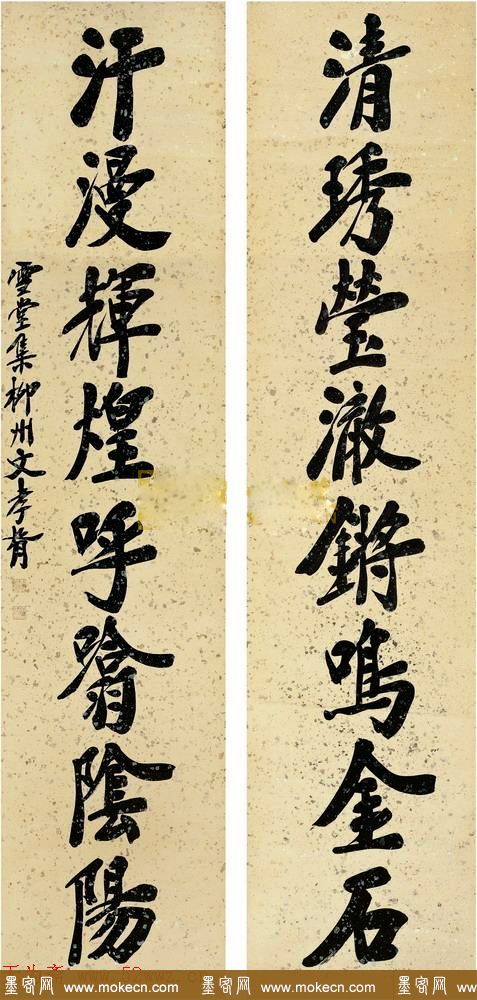 清琇瑩澈鏘鳴金石
汗漫輝煌呼噏陰陽
雪堂集柳州文孝胥
墨客网 www.mokecn.com 墨客网 www.mokecn.com 墨客网 www.mokecn.com